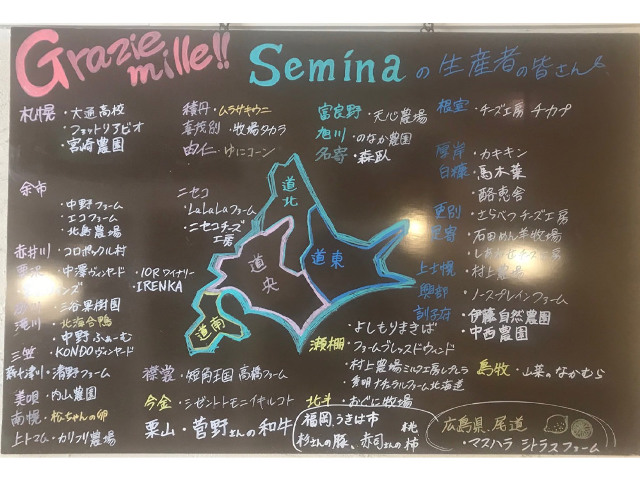 Grazie mille!!
Seminaの生産者の皆さん
札幌・大通高校
・フットリアビオ
・宮崎農園
積丹・ムラサキウニ
喜茂別・牧場タカラ
由仁・ゆにコーン
富良野・天心農場
旭川・のなか農園
名寄・森臥
根室・チーズ工房 チカプ
厚岸・カキキン
白糠・馬木葉
・酪恵舎
更別・さらべつチーズ工房
足寄・石田めん羊牧場
・しあわせチーズ工房
上士幌・村上農場
興部・ノースプレインファーム
訓子府・伊藤自然農園
・中西農園
余市
・中野ファーム
・エコファーム
・北島農場
ニセコ
・LaLaLaファーム
・ニセコチーズ工房
赤井川・コロポックル村
・中澤ヴィンヤード
・10Rワイナリー
・IRENKA
・三谷果樹園
滝川・北海合鴨
・中野ふぁーむ
三笠・KONDOヴィンヤード
新十津川・清野ファーム
美唄・内山農園
南幌・松ちゃんの卵
上トマム・カリフリ農場
道北
道央
道東
道南
襟裳・短角王国 高橋ファーム
今金・シゼントモニイキルコト
栗山・菅野さんの和牛
瀬棚・よしもりまきば
・ファームブレッスドウィンド
・村上農場ミルク工房レプレラ
・秀明ナチュラルファーム北海道
北斗・おぐに牧場
島牧・山菜のなかむら
福岡、うきは市
杉さんの豚、赤司さんの柿
桃
広島県、尾道
・マスハラ シトラスファーム